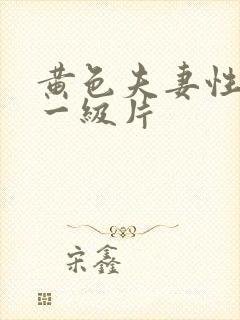 黄色夫妻性
一级片
宋鑫